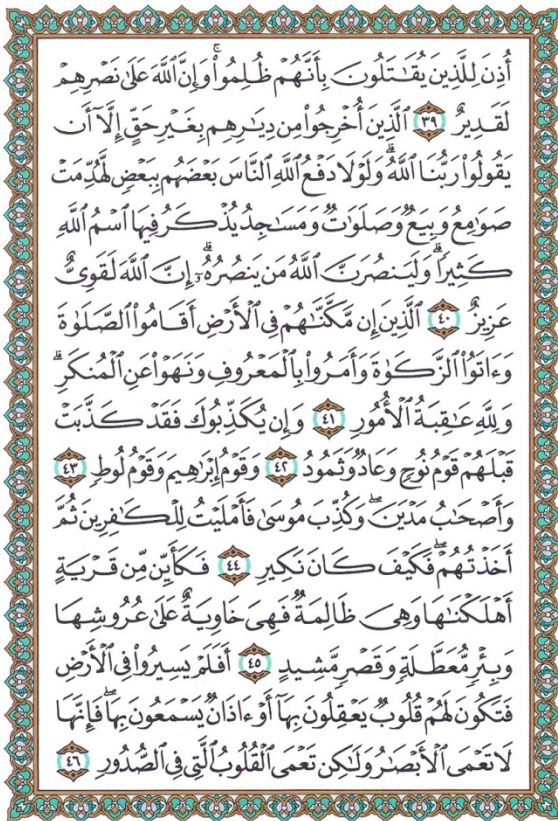 أُذِنَ لِلَّذِينَ يُقَٰتَلُونَ بِأَنَّهُمْ ظُلِمُوا۟ ۚ وَإِنَّ ٱللَّهَ عَلَىٰ نَصْرِهِمْ
لَقَدِيرٌ ٣٩ ٱلَّذِينَ أُخْرِجُوا۟ مِن دِيَٰرِهِم بِغَيْرِ حَقٍّ إِلَّآ أَن
يَقُولُوا۟ رَبُّنَا ٱللَّهُ ۗ وَلَوْلَا دَفْعُ ٱللَّهِ ٱلنَّاسَ بَعْضَهُم بِبَعْضٍ لَّهُدِّمَتْ
صَوَٰمِعُ وَبِيَعٌ وَصَلَوَٰتٌ وَمَسَٰجِدُ يُذْكَرُ فِيهَا ٱسْمُ ٱللَّهِ
كَثِيرًا ۗ وَلَيَنصُرَنَّ ٱللَّهُ مَن يَنصُرُهُۥٓ ۗ إِنَّ ٱللَّهَ لَقَوِىٌّ
عَزِيزٌ ٤٠ ٱلَّذِينَ إِن مَّكَّنَّٰهُمْ فِى ٱلْأَرْضِ أَقَامُوا۟ ٱلصَّلَوٰةَ
وَءَاتَوُا۟ ٱلزَّكَوٰةَ وَأَمَرُوا۟ بِٱلْمَعْرُوفِ وَنَهَوْا۟ عَنِ ٱلْمُنكَرِ ۗ
وَلِلَّهِ عَٰقِبَةُ ٱلْأُمُورِ ٤١ وَإِن يُكَذِّبُوكَ فَقَدْ كَذَّبَتْ
قَبْلَهُمْ قَوْمُ نُوحٍ وَعَادٌ وَثَمُودُ ٤٢ وَقَوْمُ إِبْرَٰهِيمَ وَقَوْمُ لُوطٍ ٤٣
وَأَصْحَٰبُ مَدْيَنَ ۖ وَكُذِّبَ مُوسَىٰ فَأَمْلَيْتُ لِلْكَٰفِرِينَ ثُمَّ
أَخَذْتُهُمْ ۖ فَكَيْفَ كَانَ نَكِيرِ ٤٤ فَكَأَيِّن مِّن قَرْيَةٍ
أَهْلَكْنَٰهَا وَهِىَ ظَالِمَةٌ فَهِىَ خَاوِيَةٌ عَلَىٰ عُرُوشِهَا
وَبِئْرٍ مُّعَطَّلَةٍ وَقَصْرٍ مَّشِيدٍ ٤٥ أَفَلَمْ يَسِيرُوا۟ فِى ٱلْأَرْضِ
فَتَكُونَ لَهُمْ قُلُوبٌ يَعْقِلُونَ بِهَآ أَوْ ءَاذَانٌ يَسْمَعُونَ بِهَا ۖ فَإِنَّهَا
لَا تَعْمَى ٱلْأَبْصَٰرُ وَلَٰكِن تَعْمَى ٱلْقُلُوبُ ٱلَّتِى فِى ٱلصُّدُورِ ٤٦